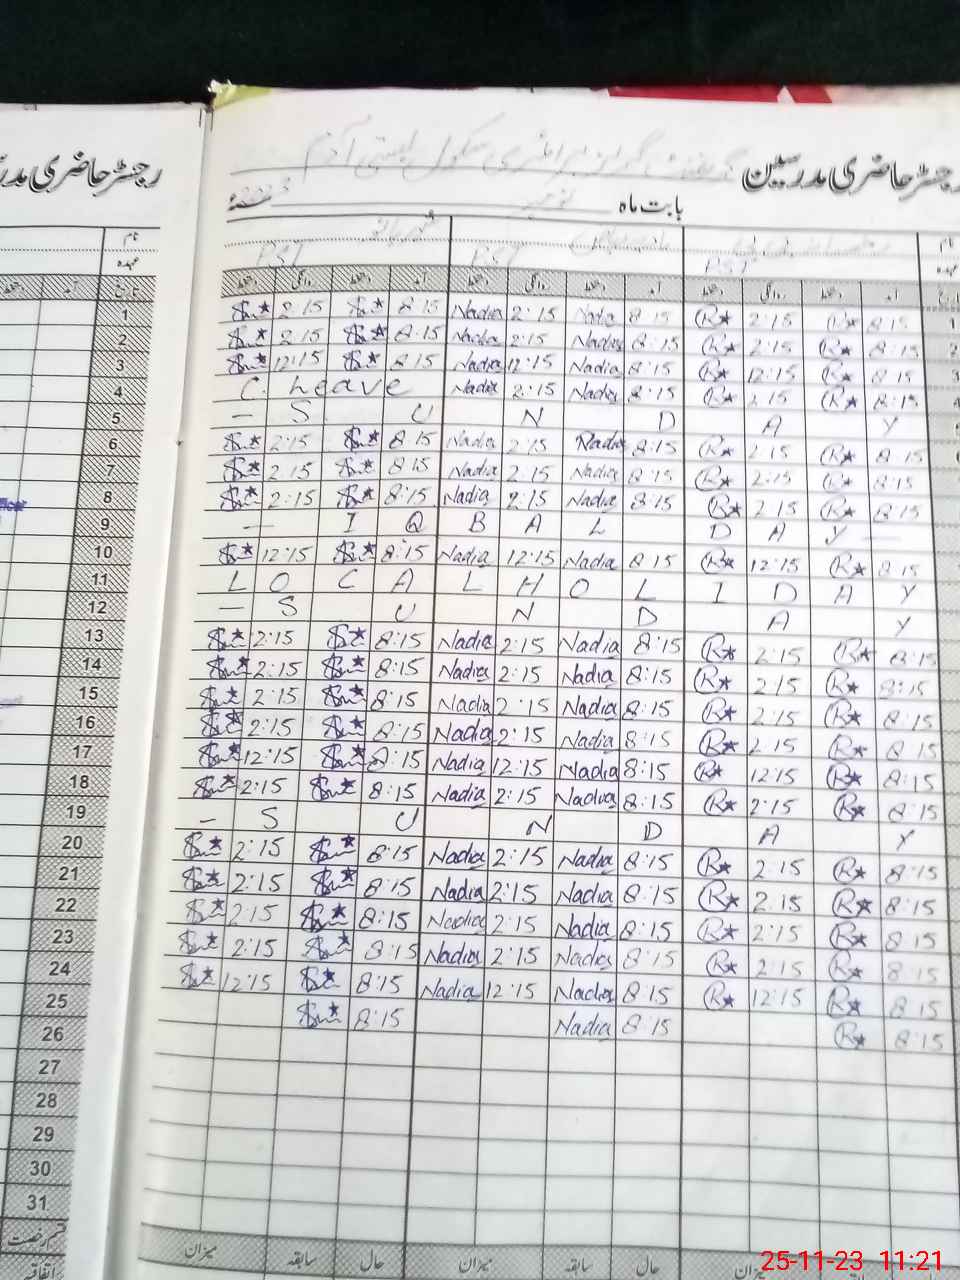 رجسٹر حاضری مدرسین
رجسٹر حاضری مدرسین گورنمنٹ گرلز پرائمری سکول بستی آدم
بابت ماہ نومبر 2023ء
نام
عہدہ PST PST PST
تاریخ آمد دستخط روانگی دستخط آمد دستخط روانگی دستخط آمد دستخط روانگی دستخط
1 2:15 8:15 Nadia 2:15 Nadia 8:15 R 2:15 R 8:15
2 2:15 8:15 Nadia 2:15 Nadia 8:15 R 2:15 R 8:15
3 12:15 8:15 Nadia 12:15 Nadia 8:15 R 12:15 R 8:15
4 C. Leave Nadia 2:15 Nadia 8:15 R 2:15 R 8:15
5 — S U N D A Y
6 2:15 8:15 Nadia 2:15 Nadia 8:15 R 2:15 R 8:15
7 2:15 8:15 Nadia 2:15 Nadia 8:15 R 2:15 R 8:15
8 2:15 8:15 Nadia 2:15 Nadia 8:15 R 2:15 R 8:15
9 — I Q B A L D A Y —
10 12:15 8:15 Nadia 12:15 Nadia 8:15 R 12:15 R 8:15
11 L O C A L H O L I D A Y
12 — S U N D A Y
13 2:15 8:15 Nadia 2:15 Nadia 8:15 R 2:15 R 8:15
14 2:15 8:15 Nadia 2:15 Nadia 8:15 R 2:15 R 8:15
15 2:15 8:15 Nadia 2:15 Nadia 8:15 R 2:15 R 8:15
16 2:15 8:15 Nadia 2:15 Nadia 8:15 R 2:15 R 8:15
17 12:15 8:15 Nadia 12:15 Nadia 8:15 R 12:15 R 8:15
18 2:15 8:15 Nadia 2:15 Nadia 8:15 R 2:15 R 8:15
19 — S U N D A Y
20 2:15 8:15 Nadia 2:15 Nadia 8:15 R 2:15 R 8:15
21 2:15 8:15 Nadia 2:15 Nadia 8:15 R 2:15 R 8:15
22 2:15 8:15 Nadia 2:15 Nadia 8:15 R 2:15 R 8:15
23 2:15 8:15 Nadia 2:15 Nadia 8:15 R 2:15 R 8:15
24 12:15 8:15 Nadia 12:15 Nadia 8:15 R 12:15 R 8:15
25 8:15 Nadia 8:15 R 8:15
26
27
28
29
30
31
قسم رخصت حال سابقہ میزان حال سابقہ میزان
اتفاقیہ
25-11-23 11:21